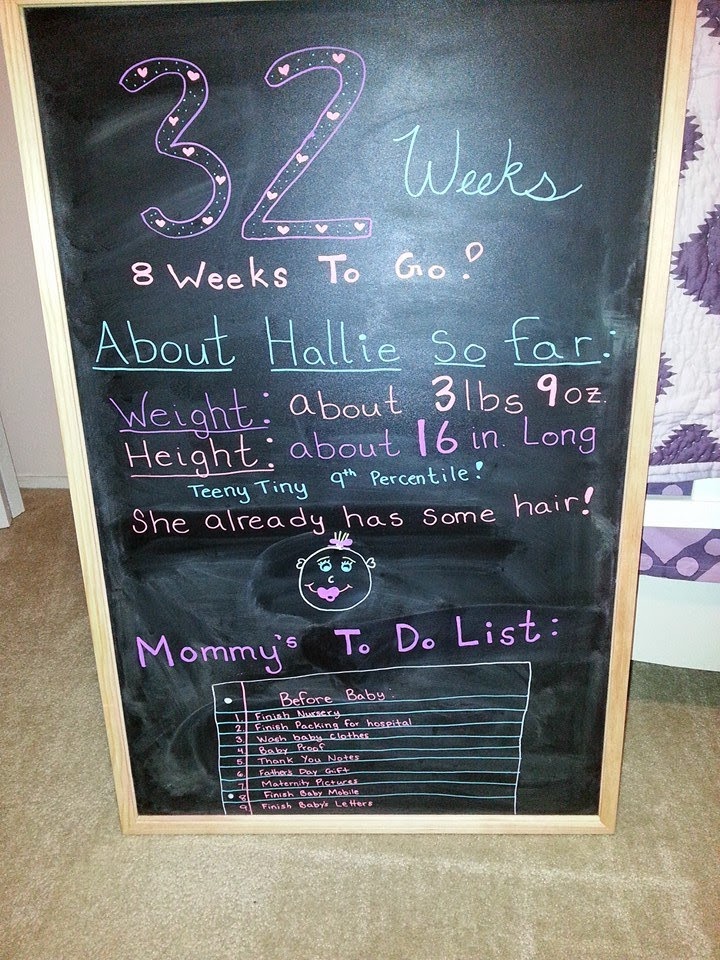 32 Weeks
8 Weeks To Go!
About Hallie So far:
Weight: about 3lbs 9oz.
Height: about 16 in. Long
Teeny Tiny 9th Percentile!
She already has some hair!
Mommy's To Do List:
Before Baby
1 Finish Nursery
2 Finish Packing for hospital
3 Wash baby clothes
4 Baby Proof
5 Thank You Notes
6 Father's Day Gift
7 Maternity Pictures
8 Finish Baby Mobile
9 Finish Baby's Letters